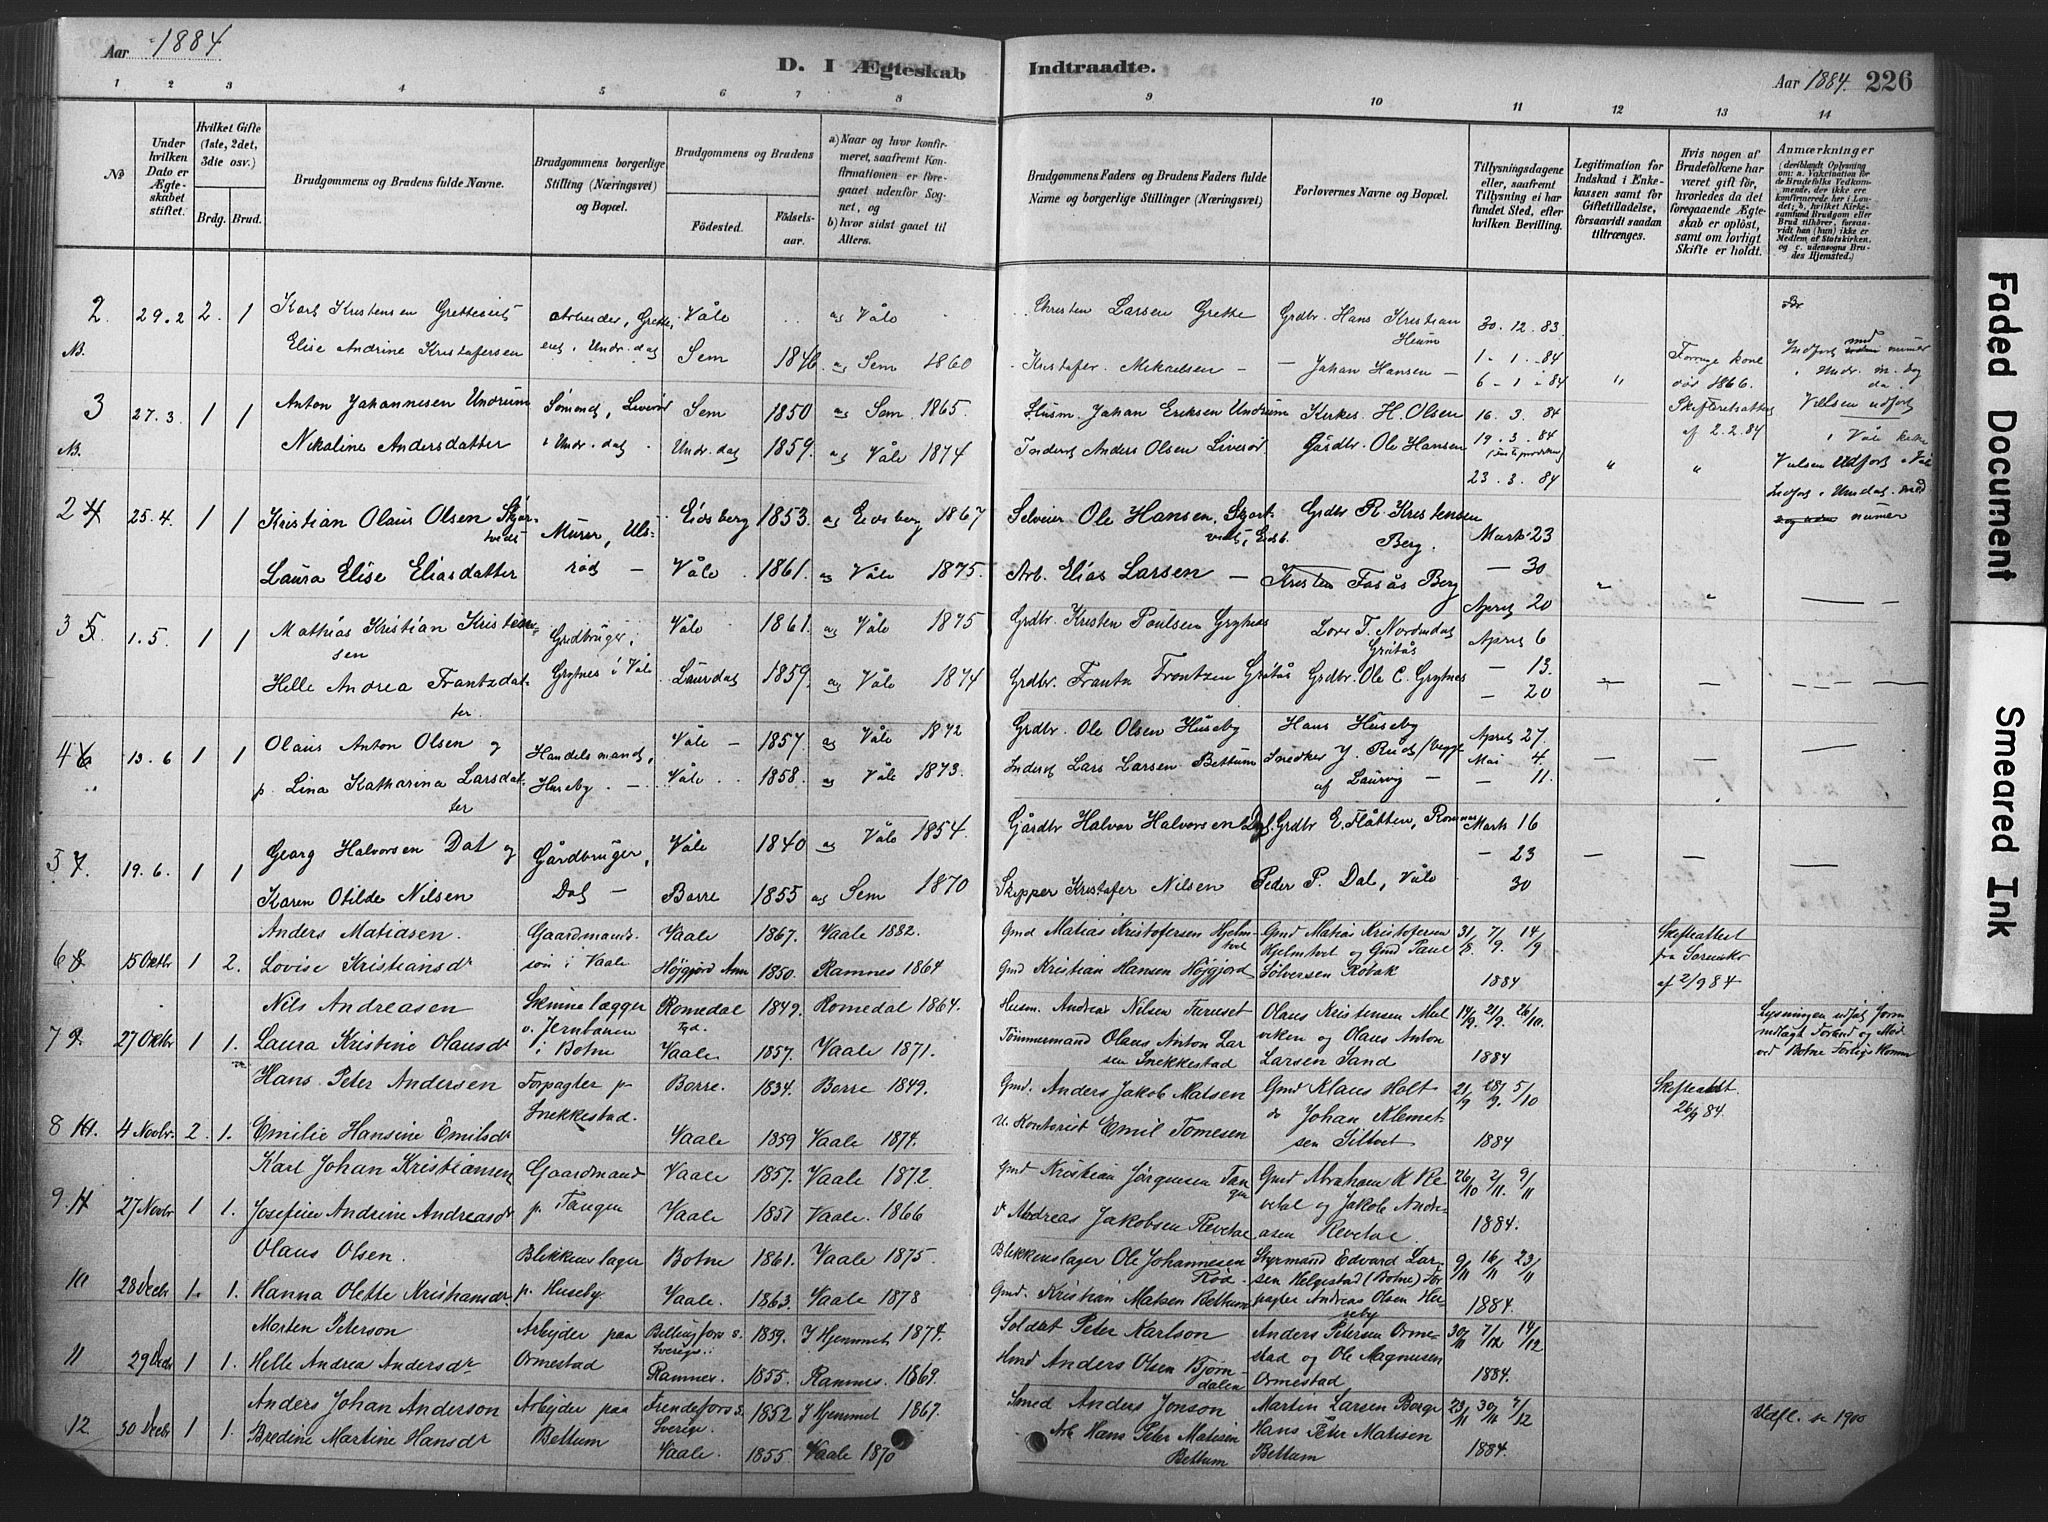 Aar 1884
D. I Ægteskab Indtraadte.
Aar 1884. 226
1 2 3 4 5 6 7 8 9 10 11 12 13 14
No
Under hvilken Dato er Ægteskabet stiftet.
Hvilket Gifte (1ste, 2det, 3die osv.)
Brdg. Brud.
Brudgommens og Brudens fulde Navne.
Brudgommens borgerlige Stilling (Næringsvei) og Bopæl.
Brudgommens og Brudens
Fødested.
Fødselsaar.
a) Naar og hvor konfirmeret, saafremt Konfirmationen er foregaaet udenfor Sognet, og
b) hvor sidst gaaet til Alters.
Brudgommens Faders og Brudens Faders fulde Navne og borgerlige Stillinger (Næringsvei)
Forlovernes Navne og Bopæl.
Tillysningsdagene eller, saafremt Tillysning ei har fundet Sted, efter hvilken Bevilling.
Legitimation for Indskud i Enkekassen samt for Giftetilladelse, forsaavidt saadan tiltrænges.
Hvis nogen af Brudefolkene har været gift før, hvorledes da det foregaaende Ægteskab er opløst, samt om lovligt Skifte er holdt.
Anmærkninger
(deriblandt Oplysning om: a. Vaccination for de Brudefolks Vedkommende, der ikke ere konfirmerede her i Landet; b. hvilket Kirkesamfund Brudgom eller Brud tilhører, forsaavidt han (hun) ikke er Medlem af Statskirken, og c. udensogns Brudes Hjemsted.)
2 29.2 2. 1 Karl Kristensen Gretteeiet Arbeider, Gretteeiet i Undr.dal Våle ag Våle Christen Larsen Grette Grdbr. Hans Kristian Heum 30.12.83
N. Elise Andrine Kristofersen Sem 1846. ag Sem 1860 Kristofer Mikaelsen – – Johan Hansen – 1-1-84 Forrige kone død 1866.
6-1-84
3 27.3. 1 1 Anton Johannesen Undrum Sømand, Liverød i Undr.dal Sem 1850 ag Sem 1865. Husm. Johan Eriksen Undrum Kirkes. H. Olsen 16.3.84 Skifteretsattest af 2.2.84
N. Nikoline Andersdatter Undr.dal 1859. ag Våle 1874 Inderst Anders Olsen Liverød Gårdbr. Ole Hansen 19.3.84
23.3.84
2 4 25.4. 1 1 Kristian Olaus Olsen Skjortvedt Murer, Ulsrød – Eidsberg 1853. ag Eidsberg 1867 Selveier Ole Hansen, Skjortvedt, Eidsb. Grdbr R. Kristensen Berg. Marts 23
Laura Elise Eliasdatter Våle 1861. ag Våle 1875. Arb. Elias Larsen – Kristen Fosås Berg – 30
April 20
3 5 1.5. 1 1 Mathias Kristian Kristensen Grdbruger, Grytnes i Våle Våle 1861. ag Våle 1875 Grdbr. Kristen Poulsen Grytnes Lars T. Nordmdal Gretås April 6
Helle Andrea Frantzdatter Laurdal 1859. ag Våle 1874 Grdbr. Frantz Frantzen Gretås Grdbr. Ole C. Grytnes – 13.
– 20
4 6 13.6 1 1 Olaus Anton Olsen og Handelsmand, Huseby. – Våle – 1857 ag Våle 1872 Grdbr. Ole Olsen Huseby Hans Huseby April 27
p. Lina Katharina Larsdatter Våle 1858. ag Våle 1873. Inderst Lars Larsen Bettum Snedker J. Ruds af Laurvig – Mai 4.
– 11.
5 7. 19.6. 1 1 Georg Halvorsen Dal og Gårdbruger, Dal – Våle 1840 ag Våle 1854. Gårdbr Halvor Halvorsen Dal. Grdbr E. Flåtten, Ramnes Marts 16
Karen Otilde Nilsen Borre 1855 ag Sem 1870 Skipper Kristofer Nilsen Peder P. Dal, Våle – 23
30
6 8 15 Oktbr 1 2. Anders Matiasen. Gaardmandssøn i Vaale Vaale 1867. Vaale 1882. Gmd Matias Kristofersen Hjelmtvet Gmd Matias Kristofersen Hjelmtvet og Gmd Paul Sølversen Robak 31/8. 7/9. 14/9 1884 Skifteattest fra Sorensk. af 2/9 84
Lovise Kristiansdr Høyjord Ann 1850. Ramnes 1864 Gmd Kristian Hansen Høyjord
7 9 27 Oktbr 1 1. Nils Andreasen Skinnelægger v. Jernbanen i Botne Romedal 1849. Romedal 1864. Husm. Andreas Nilsen Furuset Olaus Kristensen Melviken og Olaus Anton Larsen Sand 14/9. 21/9. 26/10. 1884
Laura Kristine Olausdr Vaale 1857. Vaale 1871. Tømmermand Olaus Anton Larsen Snekkestad
8 10. 4 Novbr. 2. 1. Hans Peter Andersen Forpagter p Snekkestad. Borre. 1834. Borre 1849. Gmd. Anders Jakob Matsen Gmd Klaus Holt do Johan Klemetsen Siltvet 21/9 28/9. 5/10 1884 Skifteattst 26/9 84.
Emilie Hansine Emilsdr Vaale 1859 Vaale 1874. u. Kontorist Emil Tomesen
9. 11 27 Novbr 1 1. Karl Johan Kristiansen Gaardmand p. Tangen Vaale 1857. Vaale 1872. Gmd Kristian Jørgensen Tangen Gmd Abraham K Revetal og Jakob Andreasen Revetal. 26/10 2/11. 9/11 1884.
Josefine Andrine Andreasdr Vaale 1851 Vaale. 1866 Andreas Jakobsen Revetal
10 28 Decbr 1. 1. Olaus Olsen. Blikkenslager p. Huseby Botne 1861. Vaale 1875. Blikkenslager Ole Johannesen Rød. Styrmand Edvard Larsen Helgestad (Botne) Forpagter Andreas Olsen Huseby 9/11 16/11 23/11 1884.
Hanna Olette Kristiansdr. Vaale. 1863. Vaale 1878 Gmd. Kristian Matsen Bettum
11 29 Decbr 1 1. Morten Peterson Arbejder paa Ormestad Billingsfors s. Sverige. 1859. I Hjemmet 1874. Soldat Peter Karlson Anders Petersen Ormestad og Ole Magnusen Ormestad 30/11 7/12 14/12 1884.
Helle Andrea Andersdr Ramnes. 1855. Ramnes. 1869. Hmd Anders Olsen Bjørndalen
12. 30 Decbr 1 1. Anders Johan Anderson Arbejder paa Bettum Frendefors s. Sverige. 1852 I Hjemmet 1867. Smed Anders Jonson Martin Larsen Berge Hans Peter Matisen Bettum 23/11 30/11 7/12 1884. Udfl. se 1900
Bredine Martine Hansdr Vaale. 1855 Vaale 1870 Arb Hans Peter Matisen Bettum
Faded Document
Smeared Ink